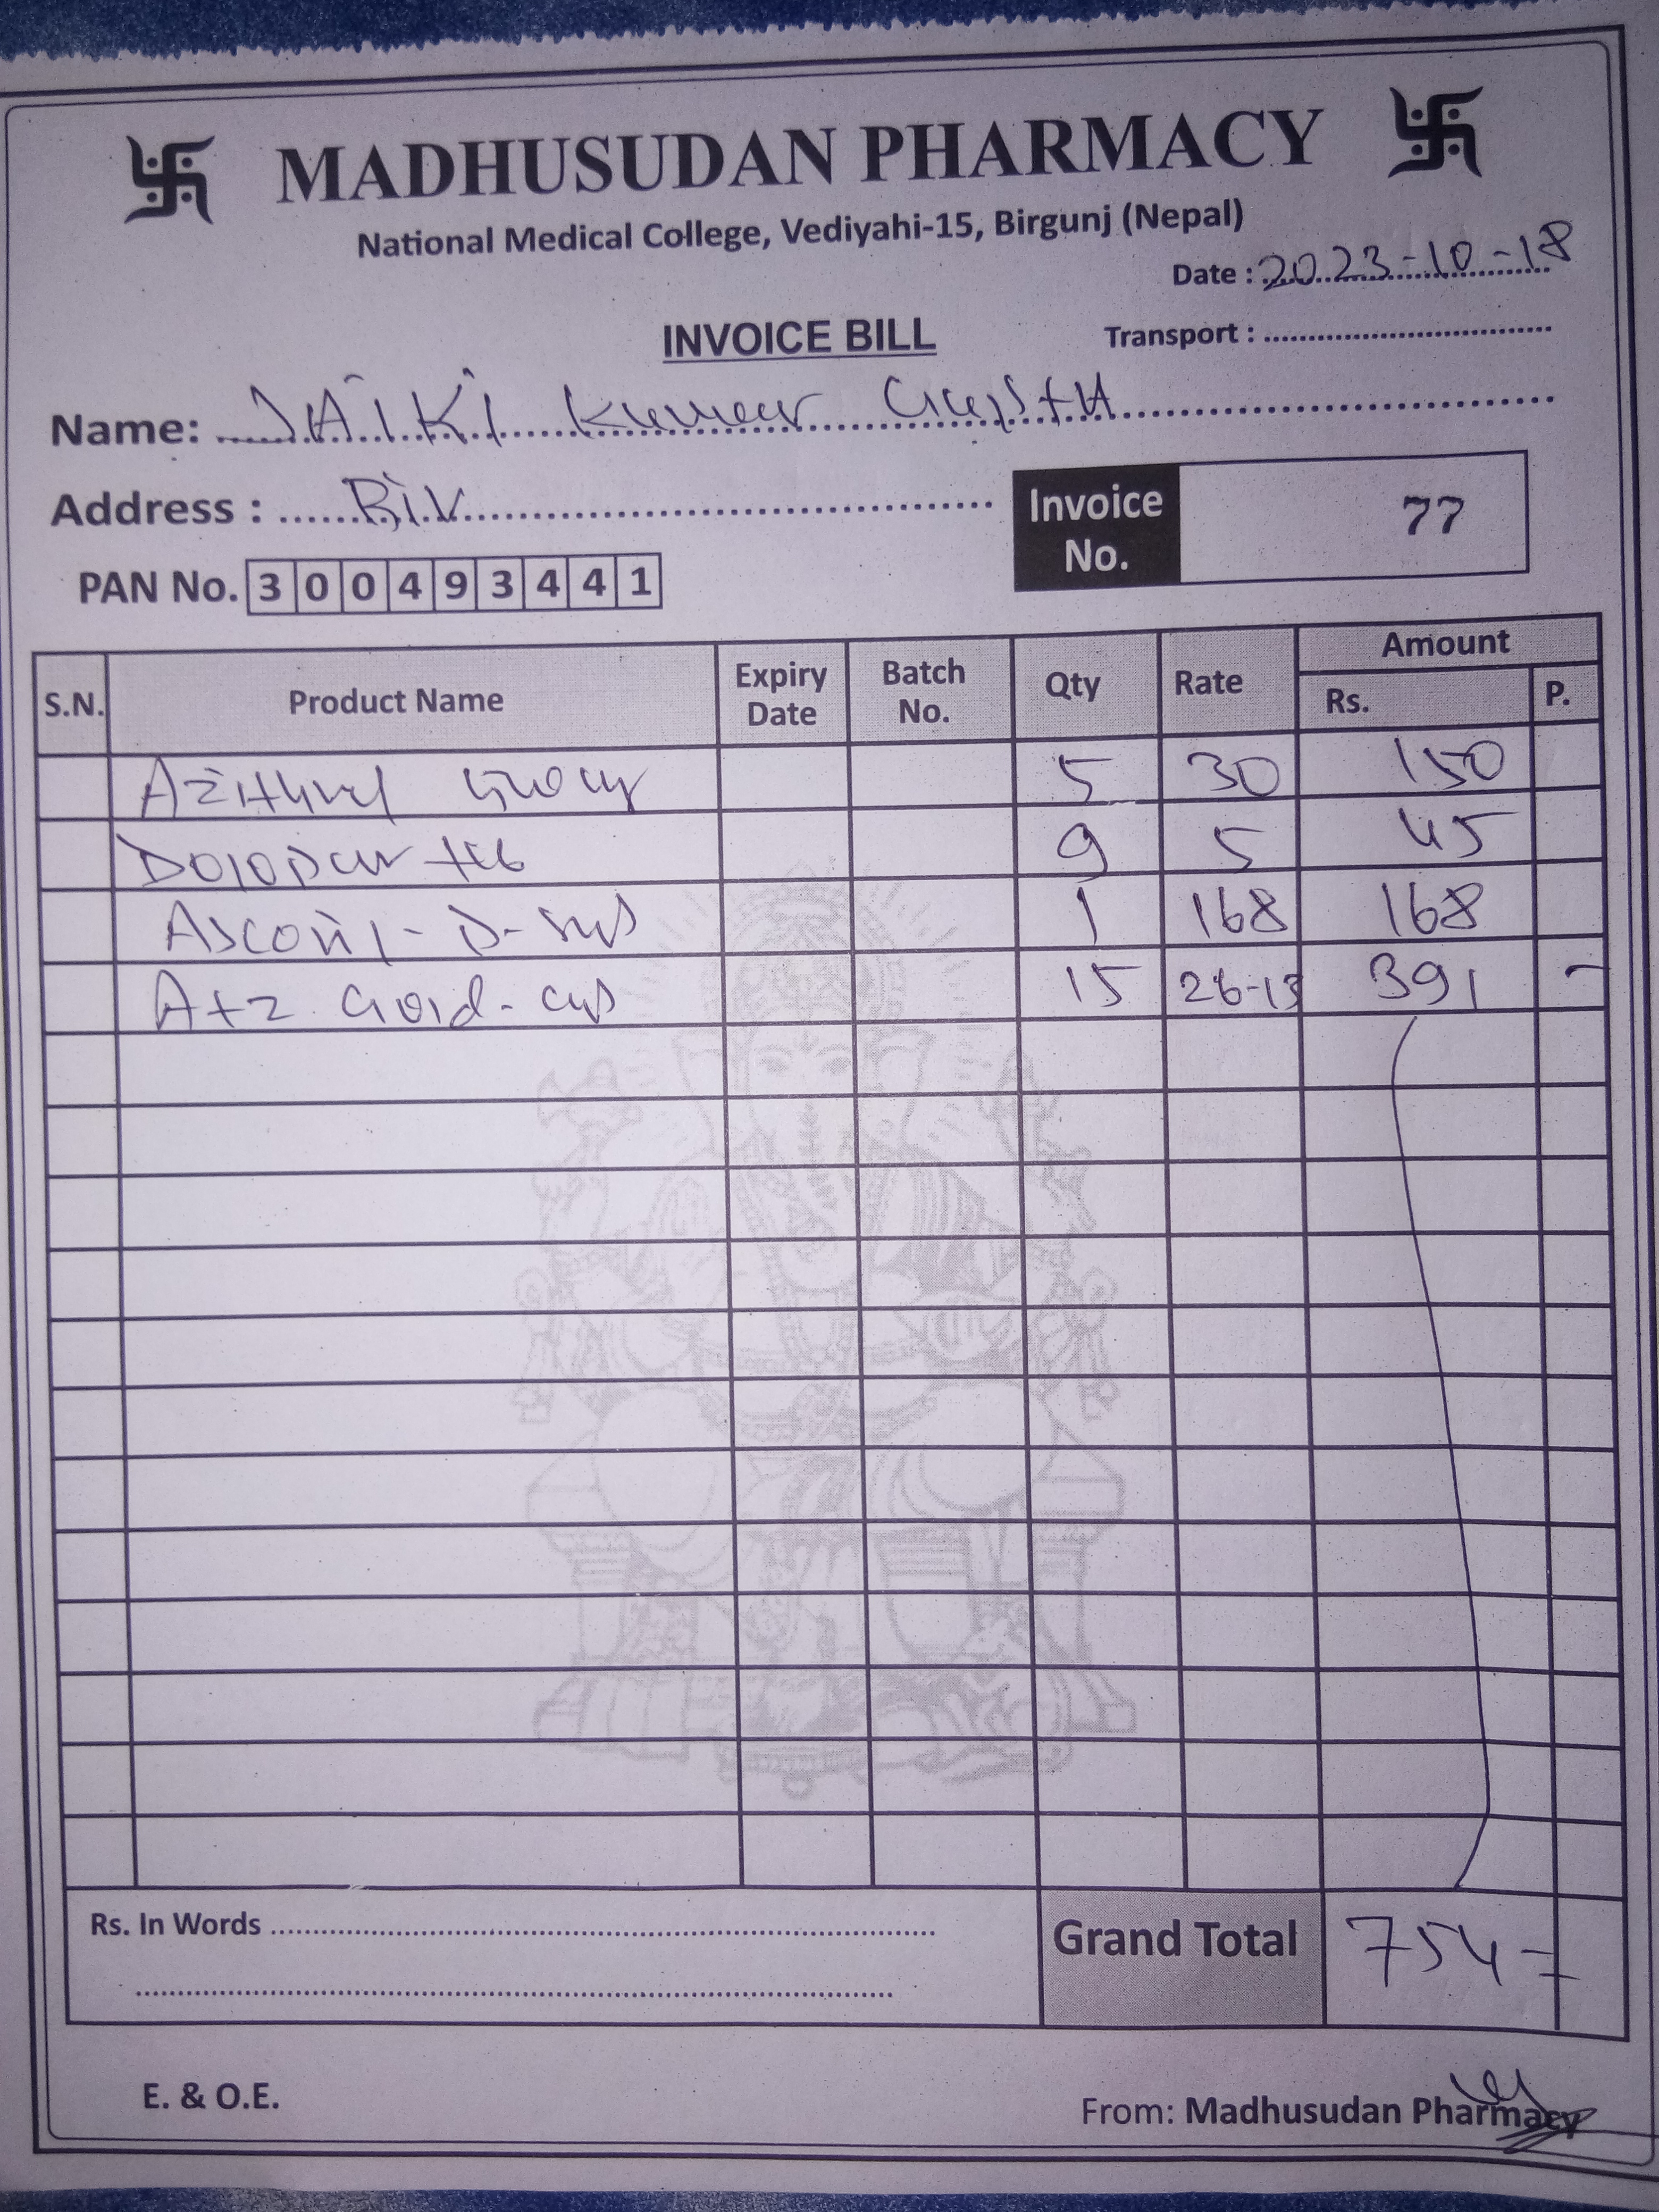 MADHUSUDAN PHARMACY
National Medical College, Vediyahi-15, Birgunj (Nepal)
Date : 2023-10-18
INVOICE BILL
Transport :
Name: JAIKI Kumar Gupta
Address :
Invoice No. 77
PAN No. 300493441
S.N. Product Name Expiry Date Batch No. Qty Rate Amount
Rs. P.
5 30 150
Dolopar tab 9 5 45
Ascoril-D-syp 1 168 168
AtZ Gold-cap 15 26-13 391 -
Rs. In Words
Grand Total 754
E. & O.E.
From: Madhusudan Pharmacy